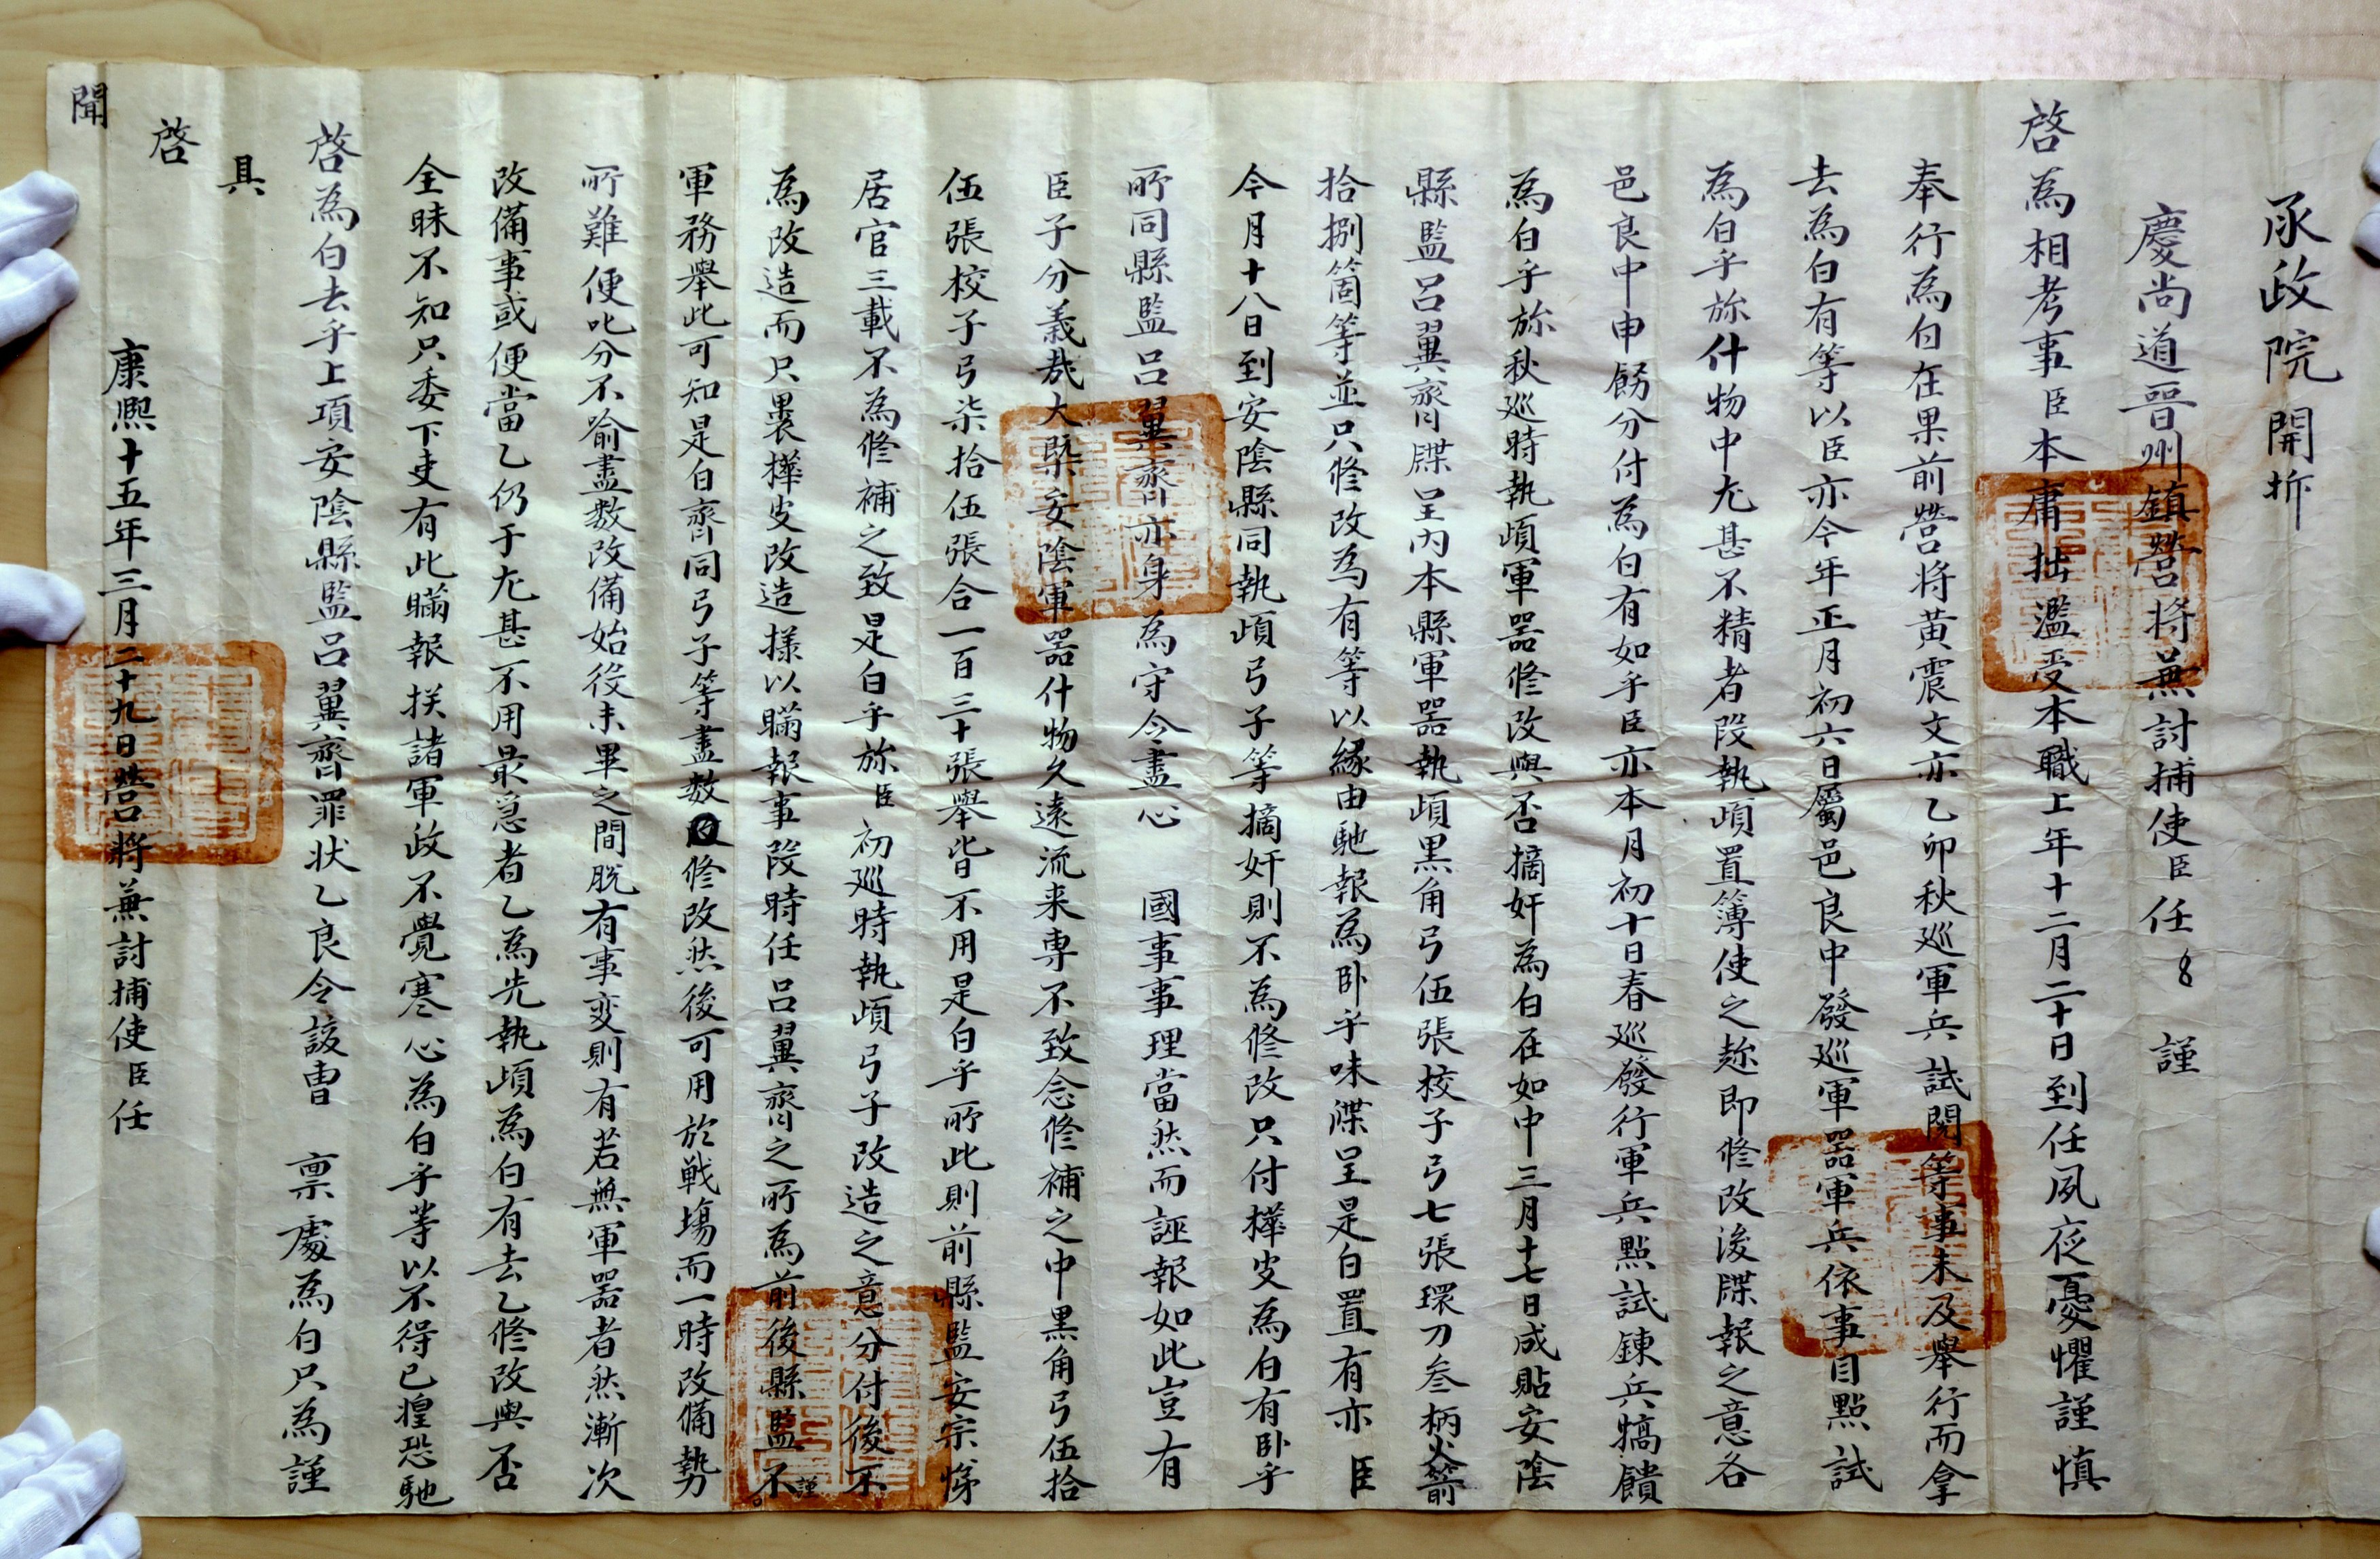 承政院 開坼
慶尚道晉州鎮營將兼討捕使臣任 謹
啓為相考事臣本庸拙濫受本職上年十二月二十日到任夙夜憂懼謹慎
奉行為白在果前營將黃震文亦乙卯秋巡軍兵試閱等事未及舉行而拿
去為白有等以臣亦今年正月初六日屬邑良中發巡軍器軍兵依事目點試
為白乎旀什物中尤甚不精者段執頉置簿使之趂即修改後牒報之意各
邑良中申飭分付為白有如乎臣亦本月初十日春巡發行軍兵點試鍊兵犒饋
為白乎旀秋巡時執頉軍器修改與否摘奸為白在如中三月十七日成貼安陰
縣監呂翼齊牒呈內本縣軍器執頉黑角弓伍張校子弓七張環刀叁柄火箭
拾捌箇等並只修改為有等以緣由馳報為卧乎味牒呈是白置有亦 臣
今月十八日到安陰縣同執頉弓子等摘奸則不為修改只付樺皮為白有卧乎
所同縣監呂翼齊亦身為守令盡心 國事事理當然而誣報如此豈有
臣子分義哉大槩安陰軍器什物久遠流来專不致念修補之中黑角弓伍拾
伍張校子弓柒拾伍張合一百三十張舉皆不用是白乎所此則前縣監安宗悌
居官三載不為修補之致是白乎旀臣初巡時執頉弓子改造之意分付後不
為改造而只裹樺皮改造樣以瞞報事段時任呂翼齊之所為前後縣監不謹
軍務舉此可知是白齊同弓子等盡數修改然後可用於戰場而一時改備勢
所難便叱分不喻盡數改備始役未畢之間脫有事変則有若無軍器者然漸次
改備事或便當乙仍于尤甚不用最急者乙為先執頉為白有去乙修改與否
全昧不知只委下吏有此瞞報揆諸軍政不覺寒心為白乎等以不得已惶恐馳
啓為白去乎上項安陰縣監呂翼齊罪状乙良令該曹 稟處為白只為謹
具
啓
聞
康熙十五年三月二十九日營將兼討捕使臣任